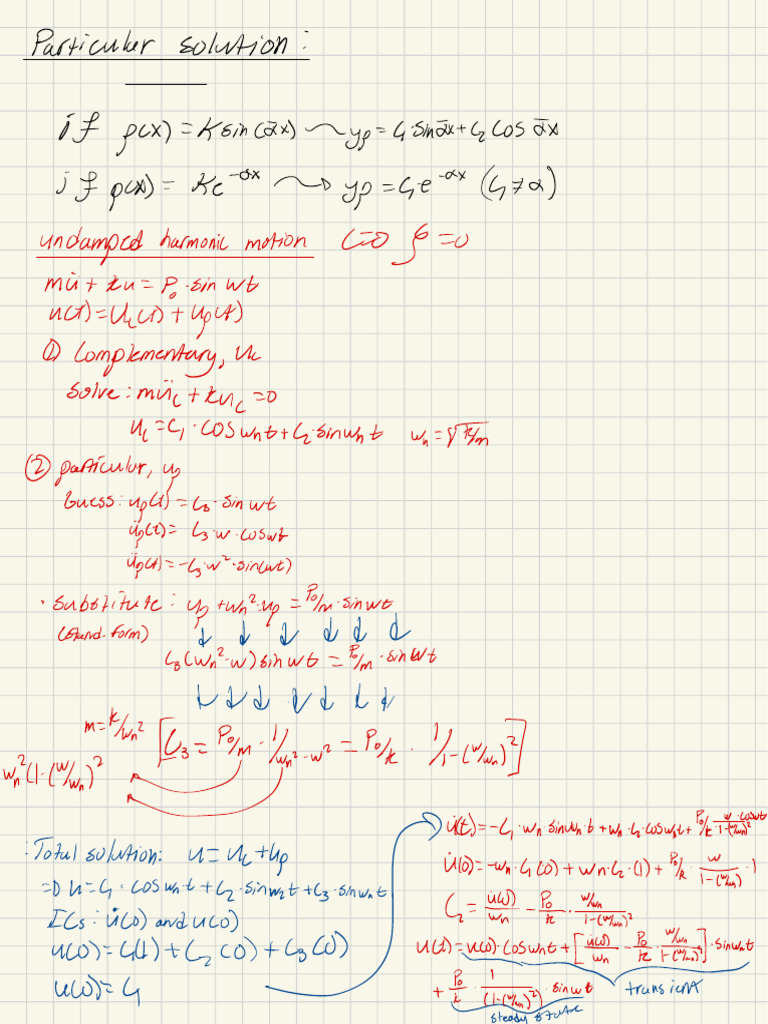 Particular solution:
if p(x) = K sin(ᾱx) ⤳ yp = C₁ sin ᾱx + C₂ cos ᾱx
if p(x) = Ke^-αx ⤳ yp = C₁e^-αx (C₁ ≠ α)
undamped harmonic motion C=0 ζ=0
mü + ku = P₀·sin wt
u(t) = Uc(t) + Up(t)
① Complementary, Uc
Solve: müc + kuc = 0
uc = C₁·cos wnt + C₂·sin wnt wn = √k/m
② particular, up
Guess: up(t) = C₃·sin wt
u̇p(t) = C₃·w·cos wt
üp(t) = -C₃·w²·sin(wt)
· Substitute: üp + wn²·up = P₀/m·sin wt
(stand. form)
↓ ↓ ↓ ↓ ↓ ↓
C₃(wn²-w)sin wt = P₀/m·sin wt
↓ ↓ ↓ ↓ ↓ ↓ ↓
m = k/wn² [C₃ = P₀/m · 1/wn²-w² = P₀/k · 1/1-(w/wn)²]
wn²(1-(w/wn)²
:Total solution: u = uc + up
⇒ u = C₁·cos wnt + C₂·sin wnt + C₃·sin wnt
ICs: u̇(0) and u(0)
u(0) = C₁(1) + C₂(0) + C₃(0)
u(0) = C₁
u̇(t) = -C₁·wn·sin wn·t + wn·C₂·cos wnt + P₀/k w·cos wt/1-(w/wn)²
u̇(0) = -wn·C₁(0) + wn·C₂·(1) + P₀/k · w/1-(w/wn)² · 1
C₂ = u̇(0)/wn - P₀/k · w/wn/1-(w/wn)²
u(t) = u(0)·cos wnt + [u̇(0)/wn - P₀/k · w/wn/1-(w/wn)²]·sin wnt
transient
+ P₀/k · 1/(1-(w/wn)²) · sin wt
steady state